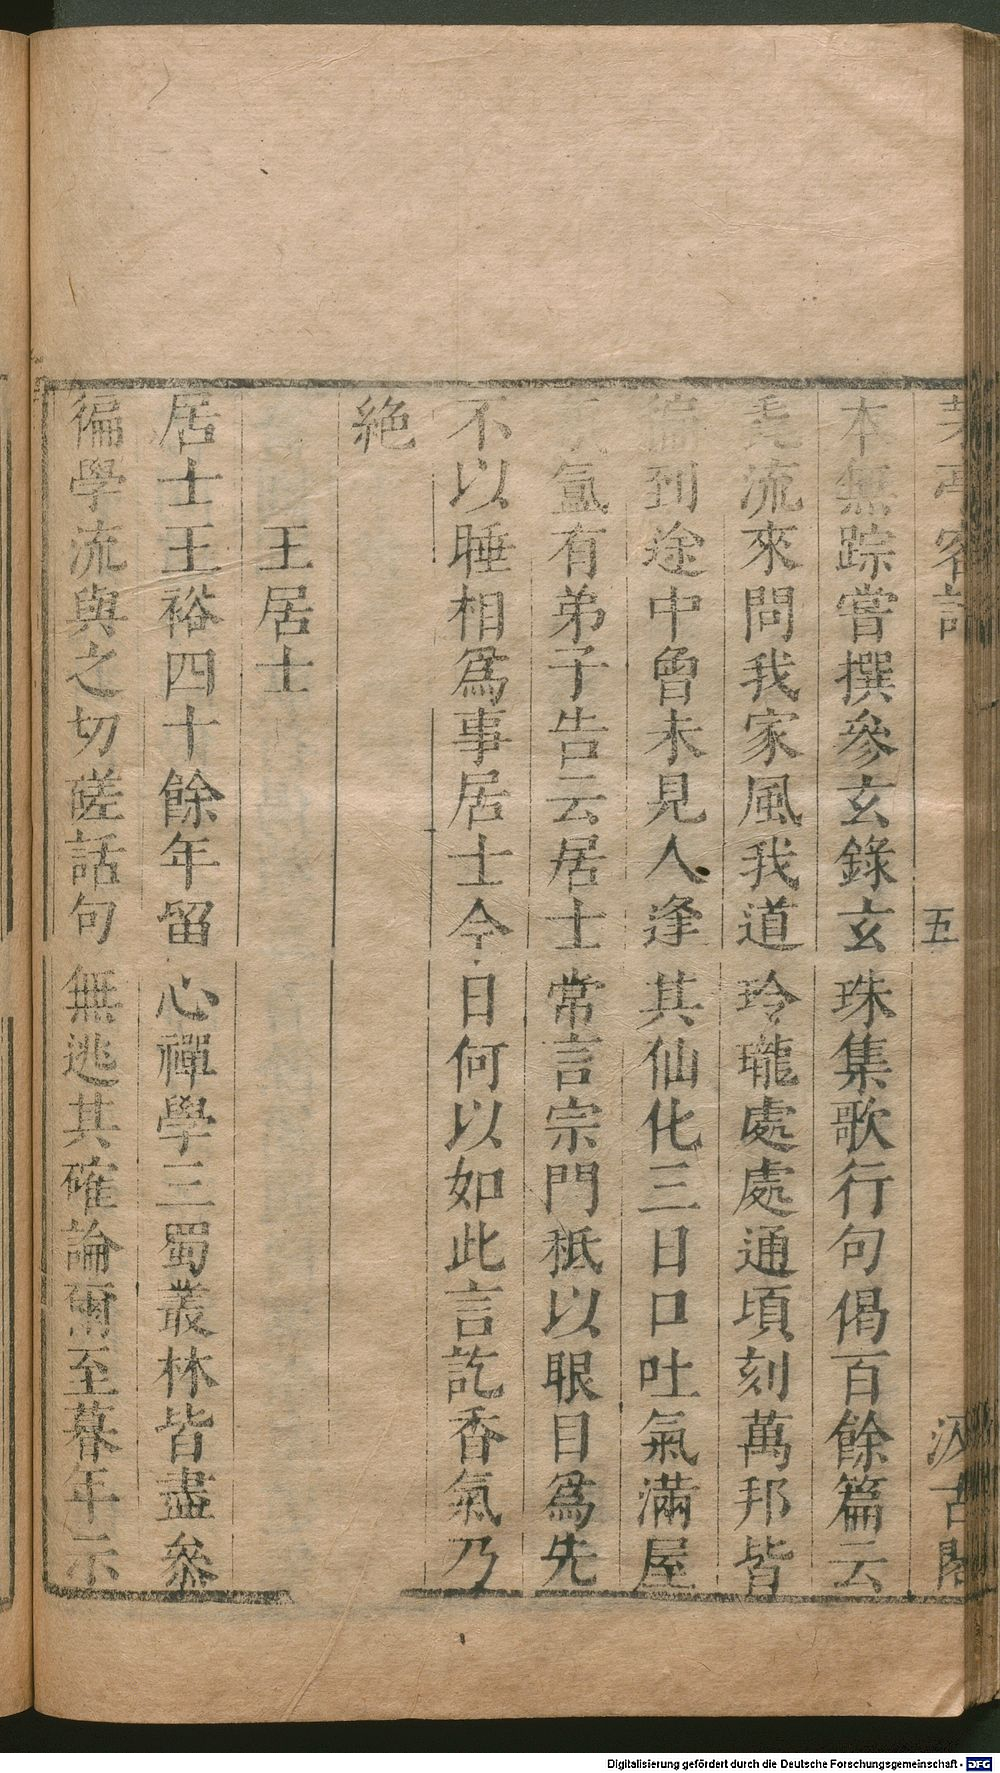 茅亭客話 五 汲古閣
本無踪嘗撰參玄錄玄珠集歌行句偈百餘篇云
流來問我家風我道玲瓏處處通頃刻萬邦皆
徧到途中曾未見人逢其仙化三日口吐氣滿屋
氳有弟子告云居士常言宗門秪以眼目爲先
不以睡相爲事居士今日何以如此言訖香氣乃
絶
王居士
居士王裕四十餘年留心禪學三蜀叢林皆盡叅
徧學流與之切磋話句無逃其確論爾至暮年示
Digitalisierung gefördert durch die Deutsche Forschungsgemeinschaft - DFG